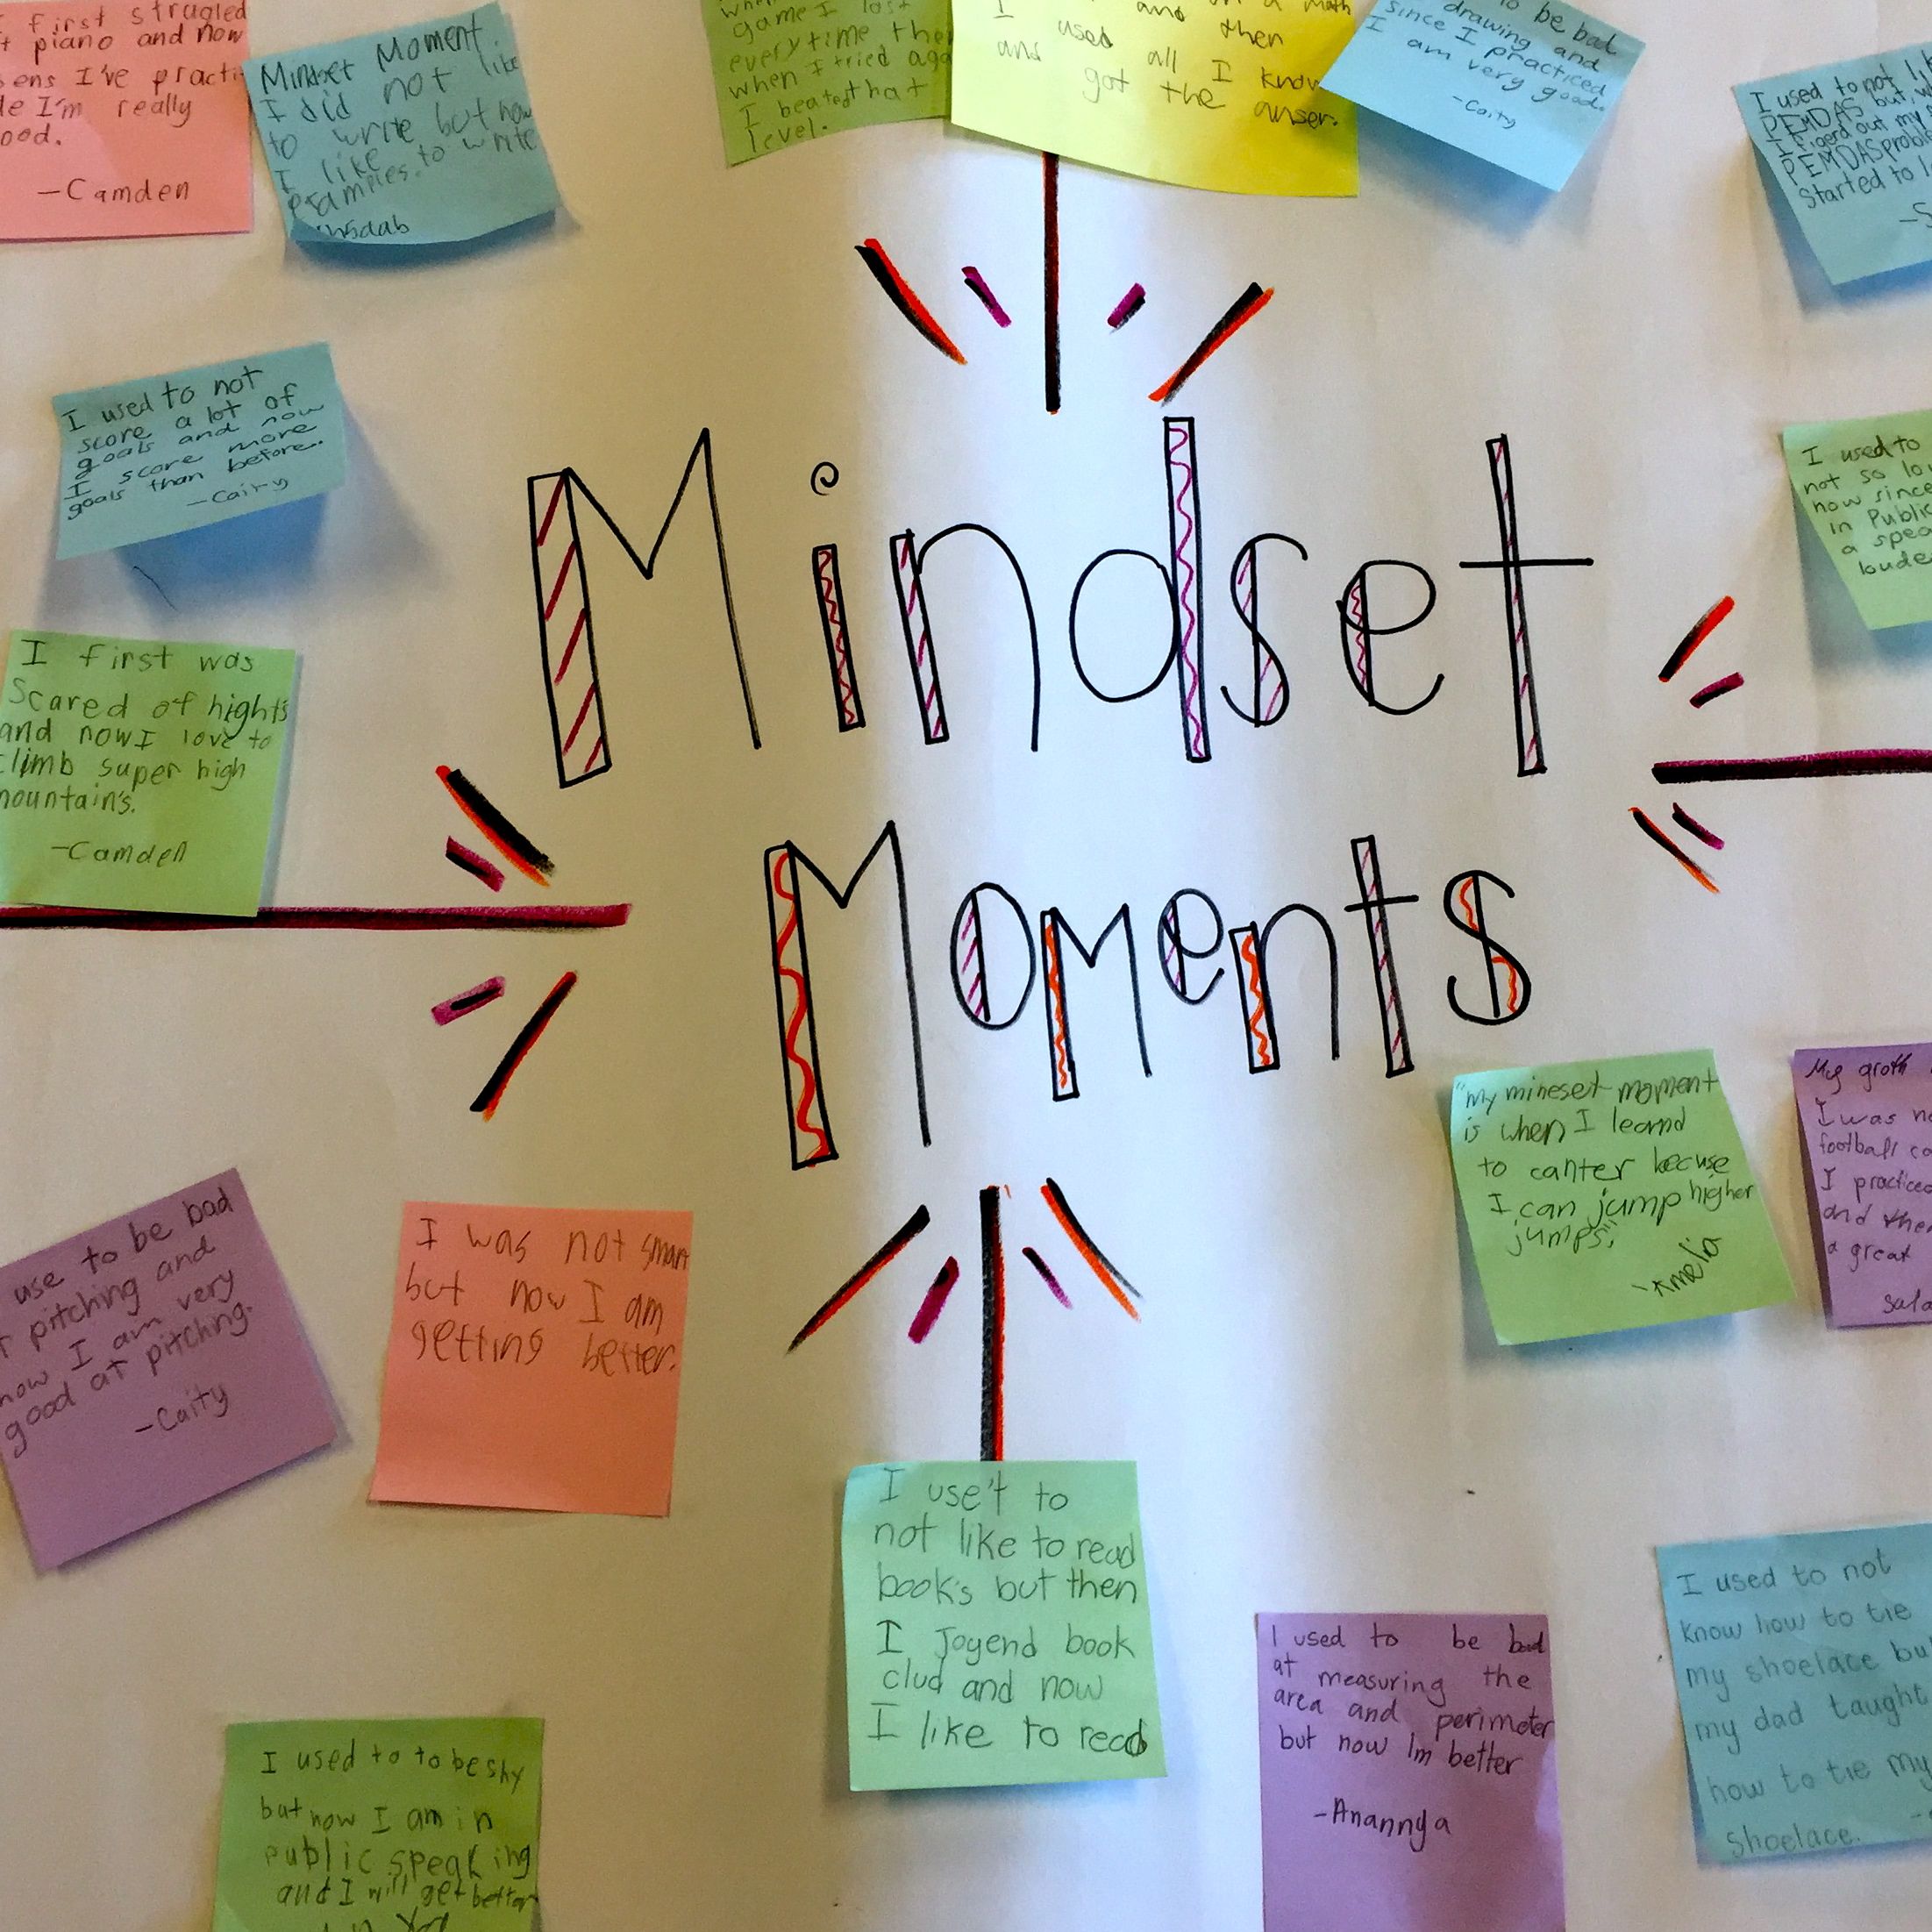 first strugled
piano and now
I've practi
I'm really
ood.
-Camden
Mindset Moment
I did not like
to write but now
I like to write
game I lost
everytime the
when I tried aga
I beated that
level.
and then
used all I know
and got the anser.
to be bad
drawing and
since I practiced
I am very good.
-Caity
I used to not
PEMDAS but
I figerd out my
PEMDAS probl
Started to
I used to not
score a lot of
goals and now
I score more
goals than before.
-Caity
I used to
not so lo
now since
in Public
a spea
loude
Mindset
Moments
I first was
Scared of hights
and now I love to
climb super high
mountain's.
-Camden
"My mineset moment
is when I learnd
to canter becuse
I can jump higher
jumps"
Amelia
My groth
I was no
football co
I practiced
and then
a great
Sala
use to be bad
pitching and
now I am very
good at pitching.
-Caity
I was not smart
but now I am
getting better.
I use't to
not like to read
book's but then
I joyend book
clud and now
I like to read
I used to be bad
at measuring the
area and perimeter
but now Im better
-Anannya
I used to not
know how to tie
my shoelace bu
my dad taught
how to tie my
shoelace.
I used to to be shy
but now I am in
public speaking
and I will get better